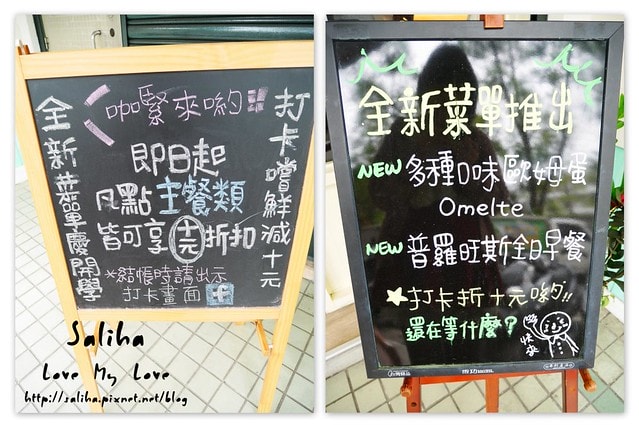 咖緊來喲!!
全新菜單慶開學
打卡嚐鮮減十元
即日起
凡點主餐類
皆可享十元折扣
*結帳時請出示
打卡畫面 f
Saliha
Love My Love
http://saliha.pixnet.net/blog
全新菜單推出
NEW 多種口味歐姆蛋
Omelte
NEW 普羅旺斯全日早餐
★打卡折十元喲!!
還在等什麼?
快來